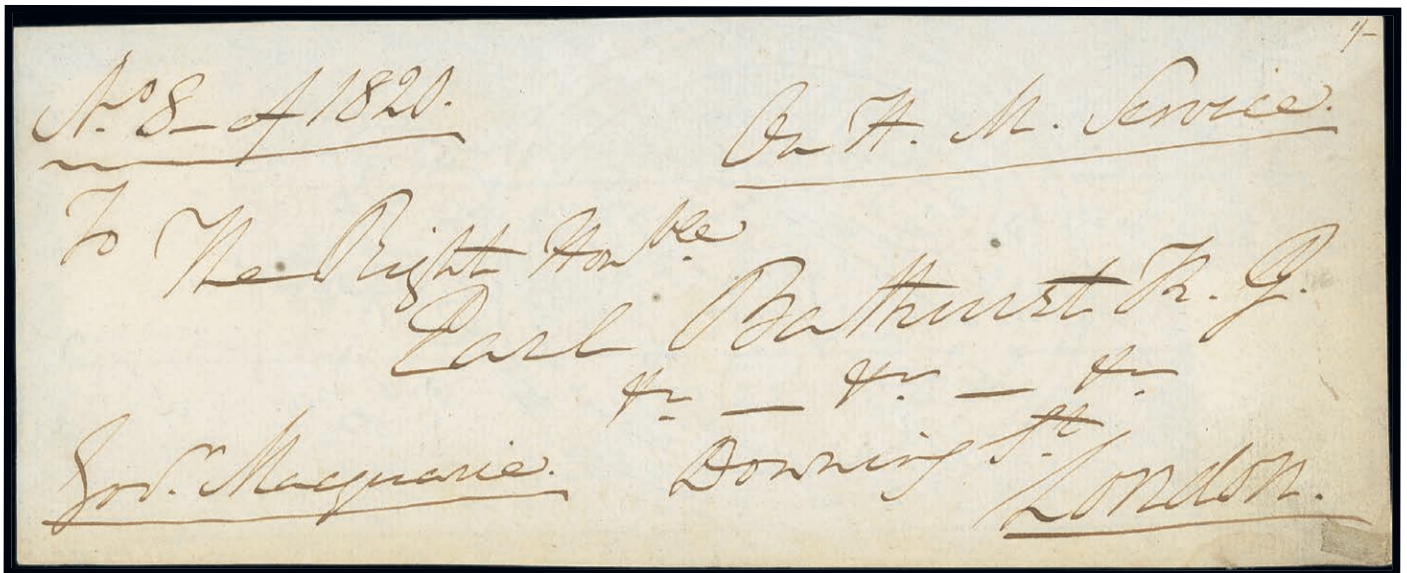 No. 8 – of 1820. On H. M. Service.
To The Right Honble
Earl Bathurst K. G.
&c. — &c. — &c.
Govr. Macquarie. Downing St.
London.